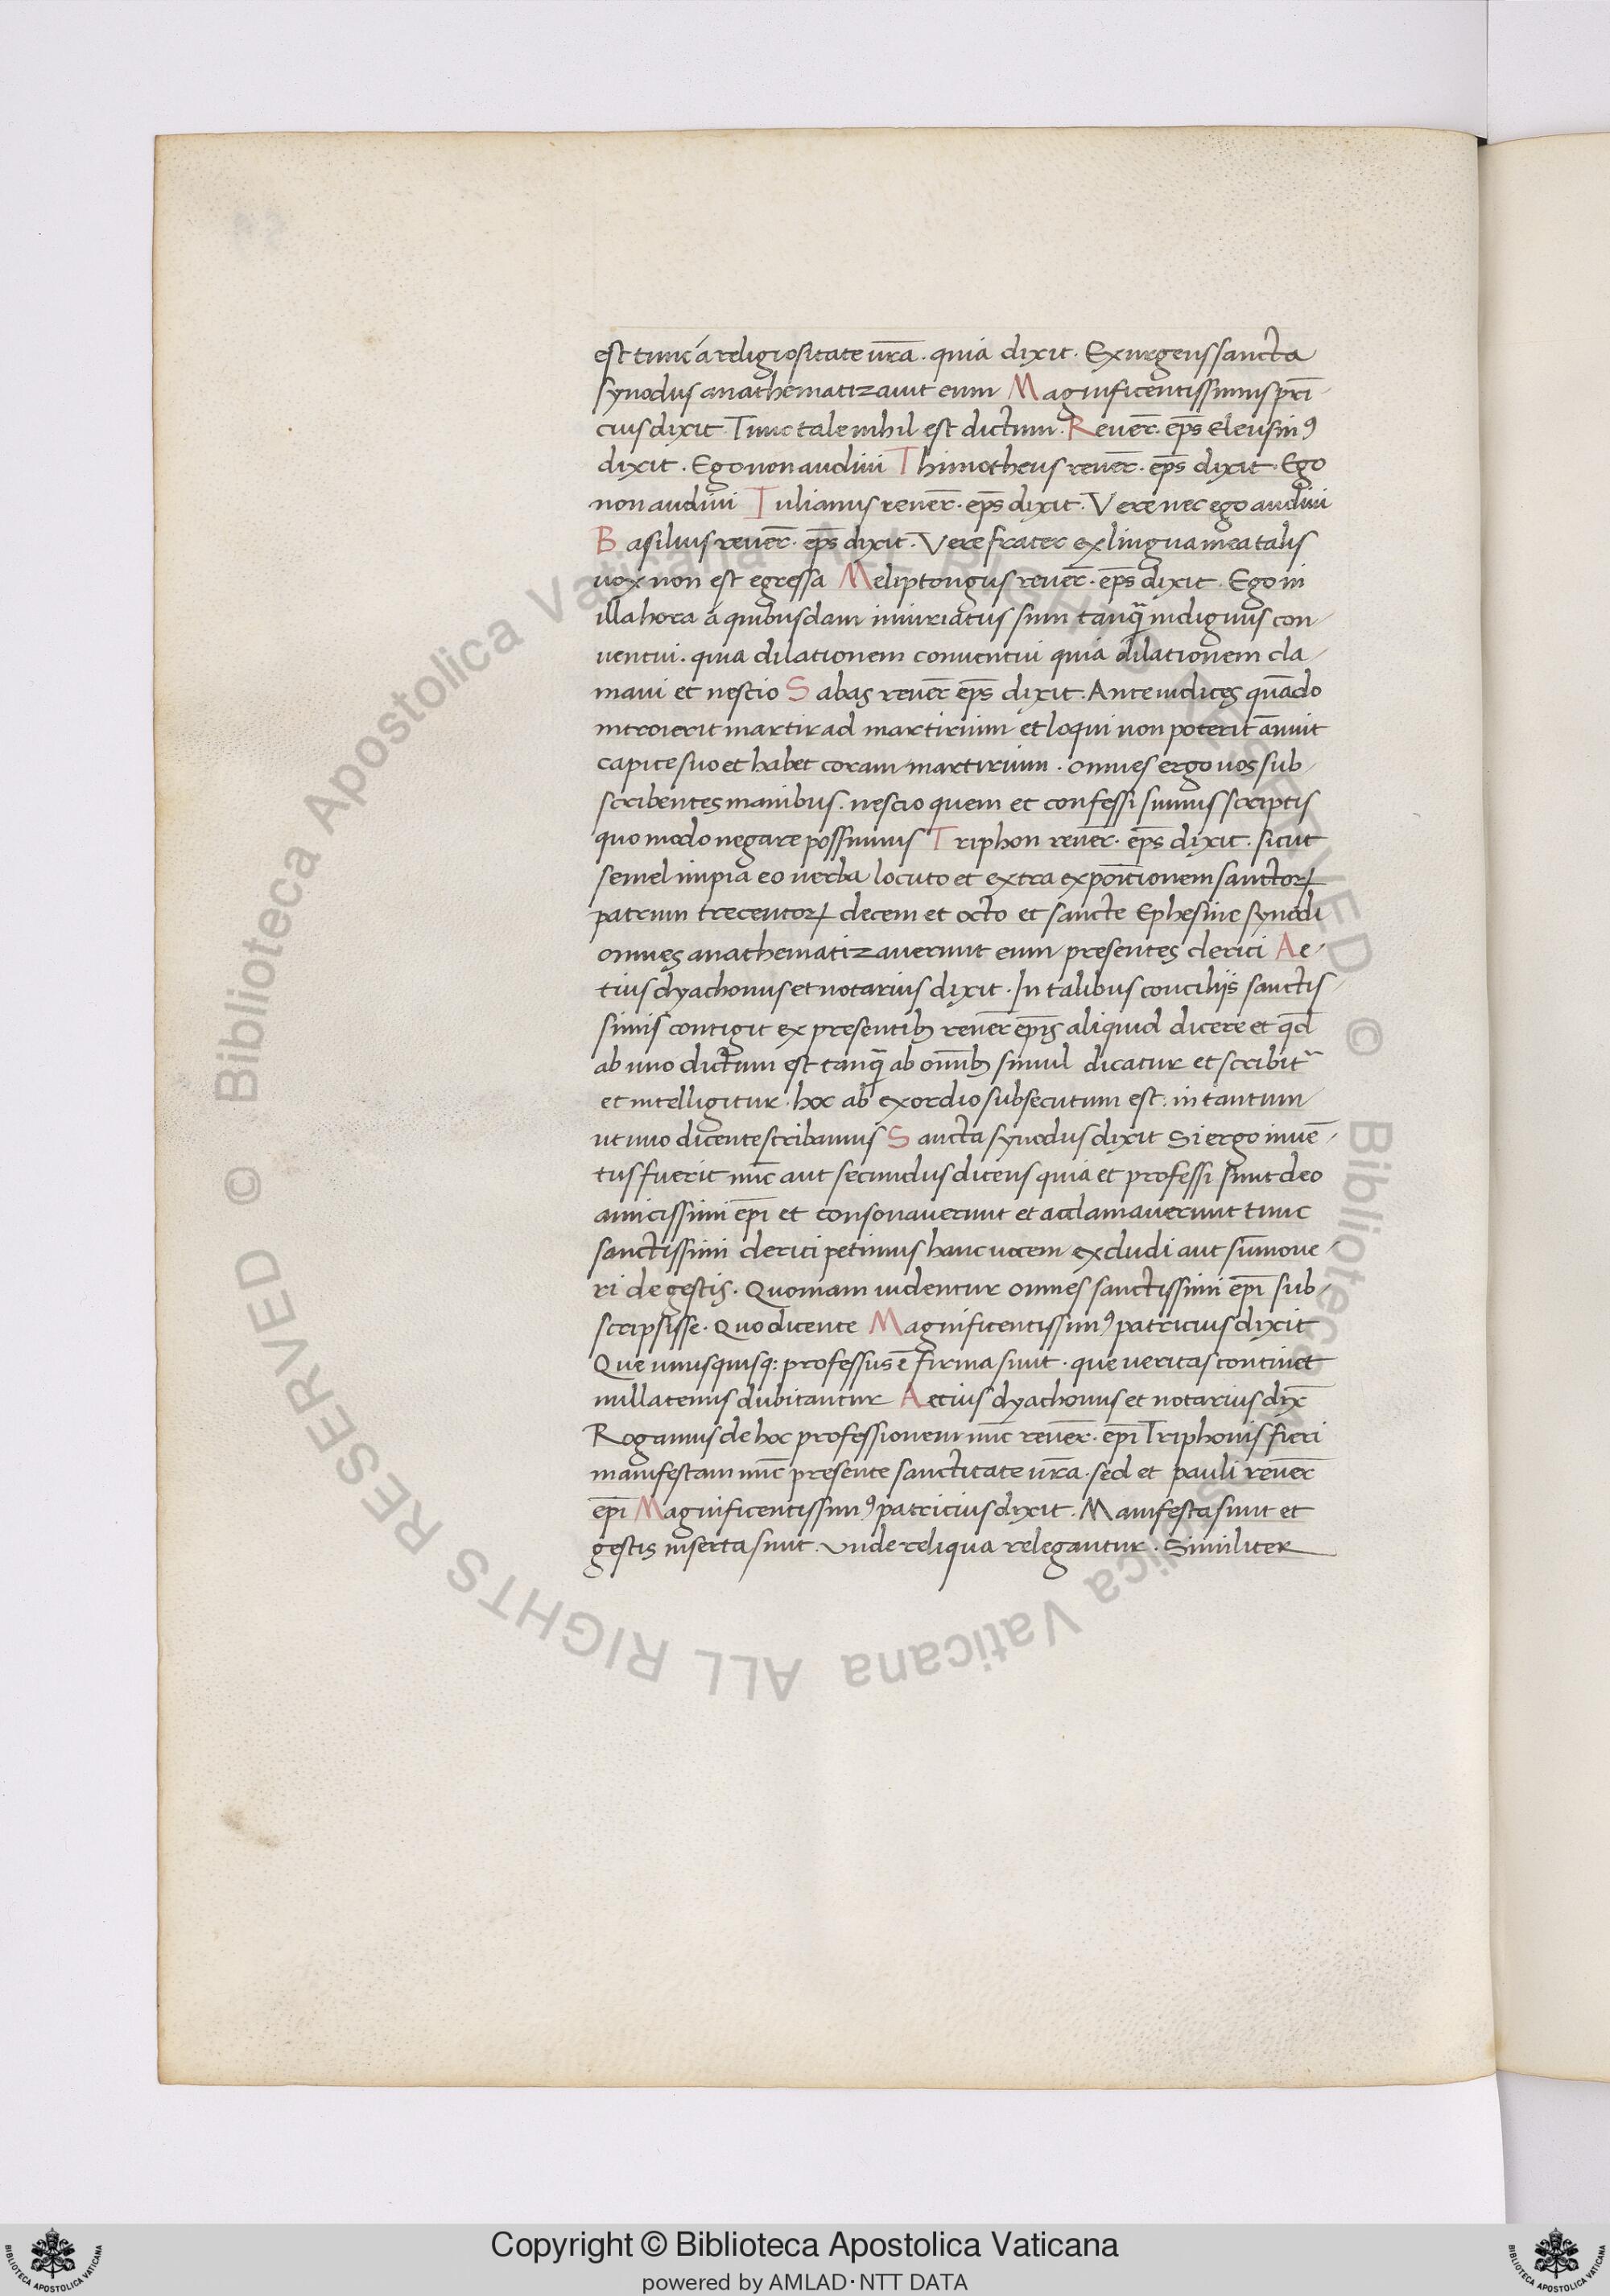 est tunc á religiositate ur̄a . quia dixit . Exurgens sancta
synodus anathematizauit eum Magnificentissimus pr̄i
cius dixit Tunc tale nihil est dictum . Reuer̄c . ep̄s Eleusiniꝰ
dixit . Ego non audiui Thimotheus reuer̄c . ep̄s dixit . Ego
non audiui Iulianus reuer̄c . ep̄s dixit . Vere nec ego audiui
Basilius reuer̄c . ep̄s dixit . Vere frater ex lingua mea talis
uox non est egressa Meliptongus reuer̄c . ep̄s dixit . Ego in
illa hora á quibusdam iniuriatus sum tanq̄ indignus con-
uentui . quia dilationem conuentui quia dilationem cla-
maui et nescio Sabas reuer̄c ep̄s dixit . Ante iudices quādo
introierit martir ad martirium et loqui non poterit ānuit
capite suo et habet coram martirium . omnes ergo uos sub-
scribentes manibus . nescio quem et confessi sumus scriptis
quo modo negare possumus Triphon reuer̄c . ep̄s dixit . sicut
semel impia eo uerba locuto et extra expoītionem sanctoꝝ
patrum trecentoꝝ decem et octo et sancte Ephesine synodi
omnes anathematizauerunt eum presentes clerici Ae-
tius dyachonus et notarius dixit . In talibus conciliis sanctis-
simis contigit ex presentibꝫ reuer̄c ep̄is aliquid dicere et qd̄
ab uno dictum est tanq̄ ab om̄ibꝫ simul dicatur et scribit᷑
et intelligitur . hoc ab exordio subsecutum est . in tantum
ut uno dicente scribamus Sancta synodus dixit Si ergo inuē-
tus fuerit nūc aut secundus dicens quia et professi sunt deo
amicissimi ep̄i et consonauerunt et acclamauerunt tunc
sanctissimi clerici petimus hanc uocem excludi aut sūmoue-
ri de gestis . Quoniam uidentur omnes sanctissimi ep̄i sub-
scripsisse . Quo dicente Magnificentissimꝰ patricius dixit
Que unusquisq: professus ē firma sunt . que ueritas continet
nullatenus dubitantur Aetius dyachonus et notarius dix̄
Rogamus de hoc professionem nūc reuer̄c . ep̄i Triphonis fieri
manifestam nūc presente sanctitate ur̄a . sed et pauli reuer̄c
ep̄i Magnificentissimꝰ patricius dixit . Manifesta sunt et
gestis inserta sunt . unde reliqua relegantur . Similiter
© Biblioteca Apostolica Vaticana ALL RIGHTS RESERVED © Biblioteca Apostolica Vaticana ALL RIGHTS RESERVED
Copyright © Biblioteca Apostolica Vaticana
powered by AMLAD·NTT DATA
BIBLIOTECA APOSTOLICA VATICANA
BIBLIOTECA APOSTOLICA VATICANA